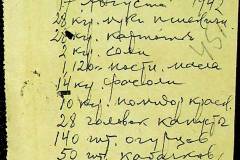 17 августа 1942
28 кг. муки пшенич.
28 кг. картошк.
2 кг. соли
120 г. пости. масла
14 кг. фасоли
10 кг. помидор красн.
28 головок капусты
140 шт. огурцов
50 шт. кабачков